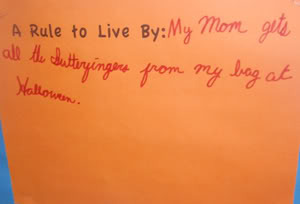 A Rule to Live By: My Mom gets
all the Butterfingers from my bag at
Halloween.